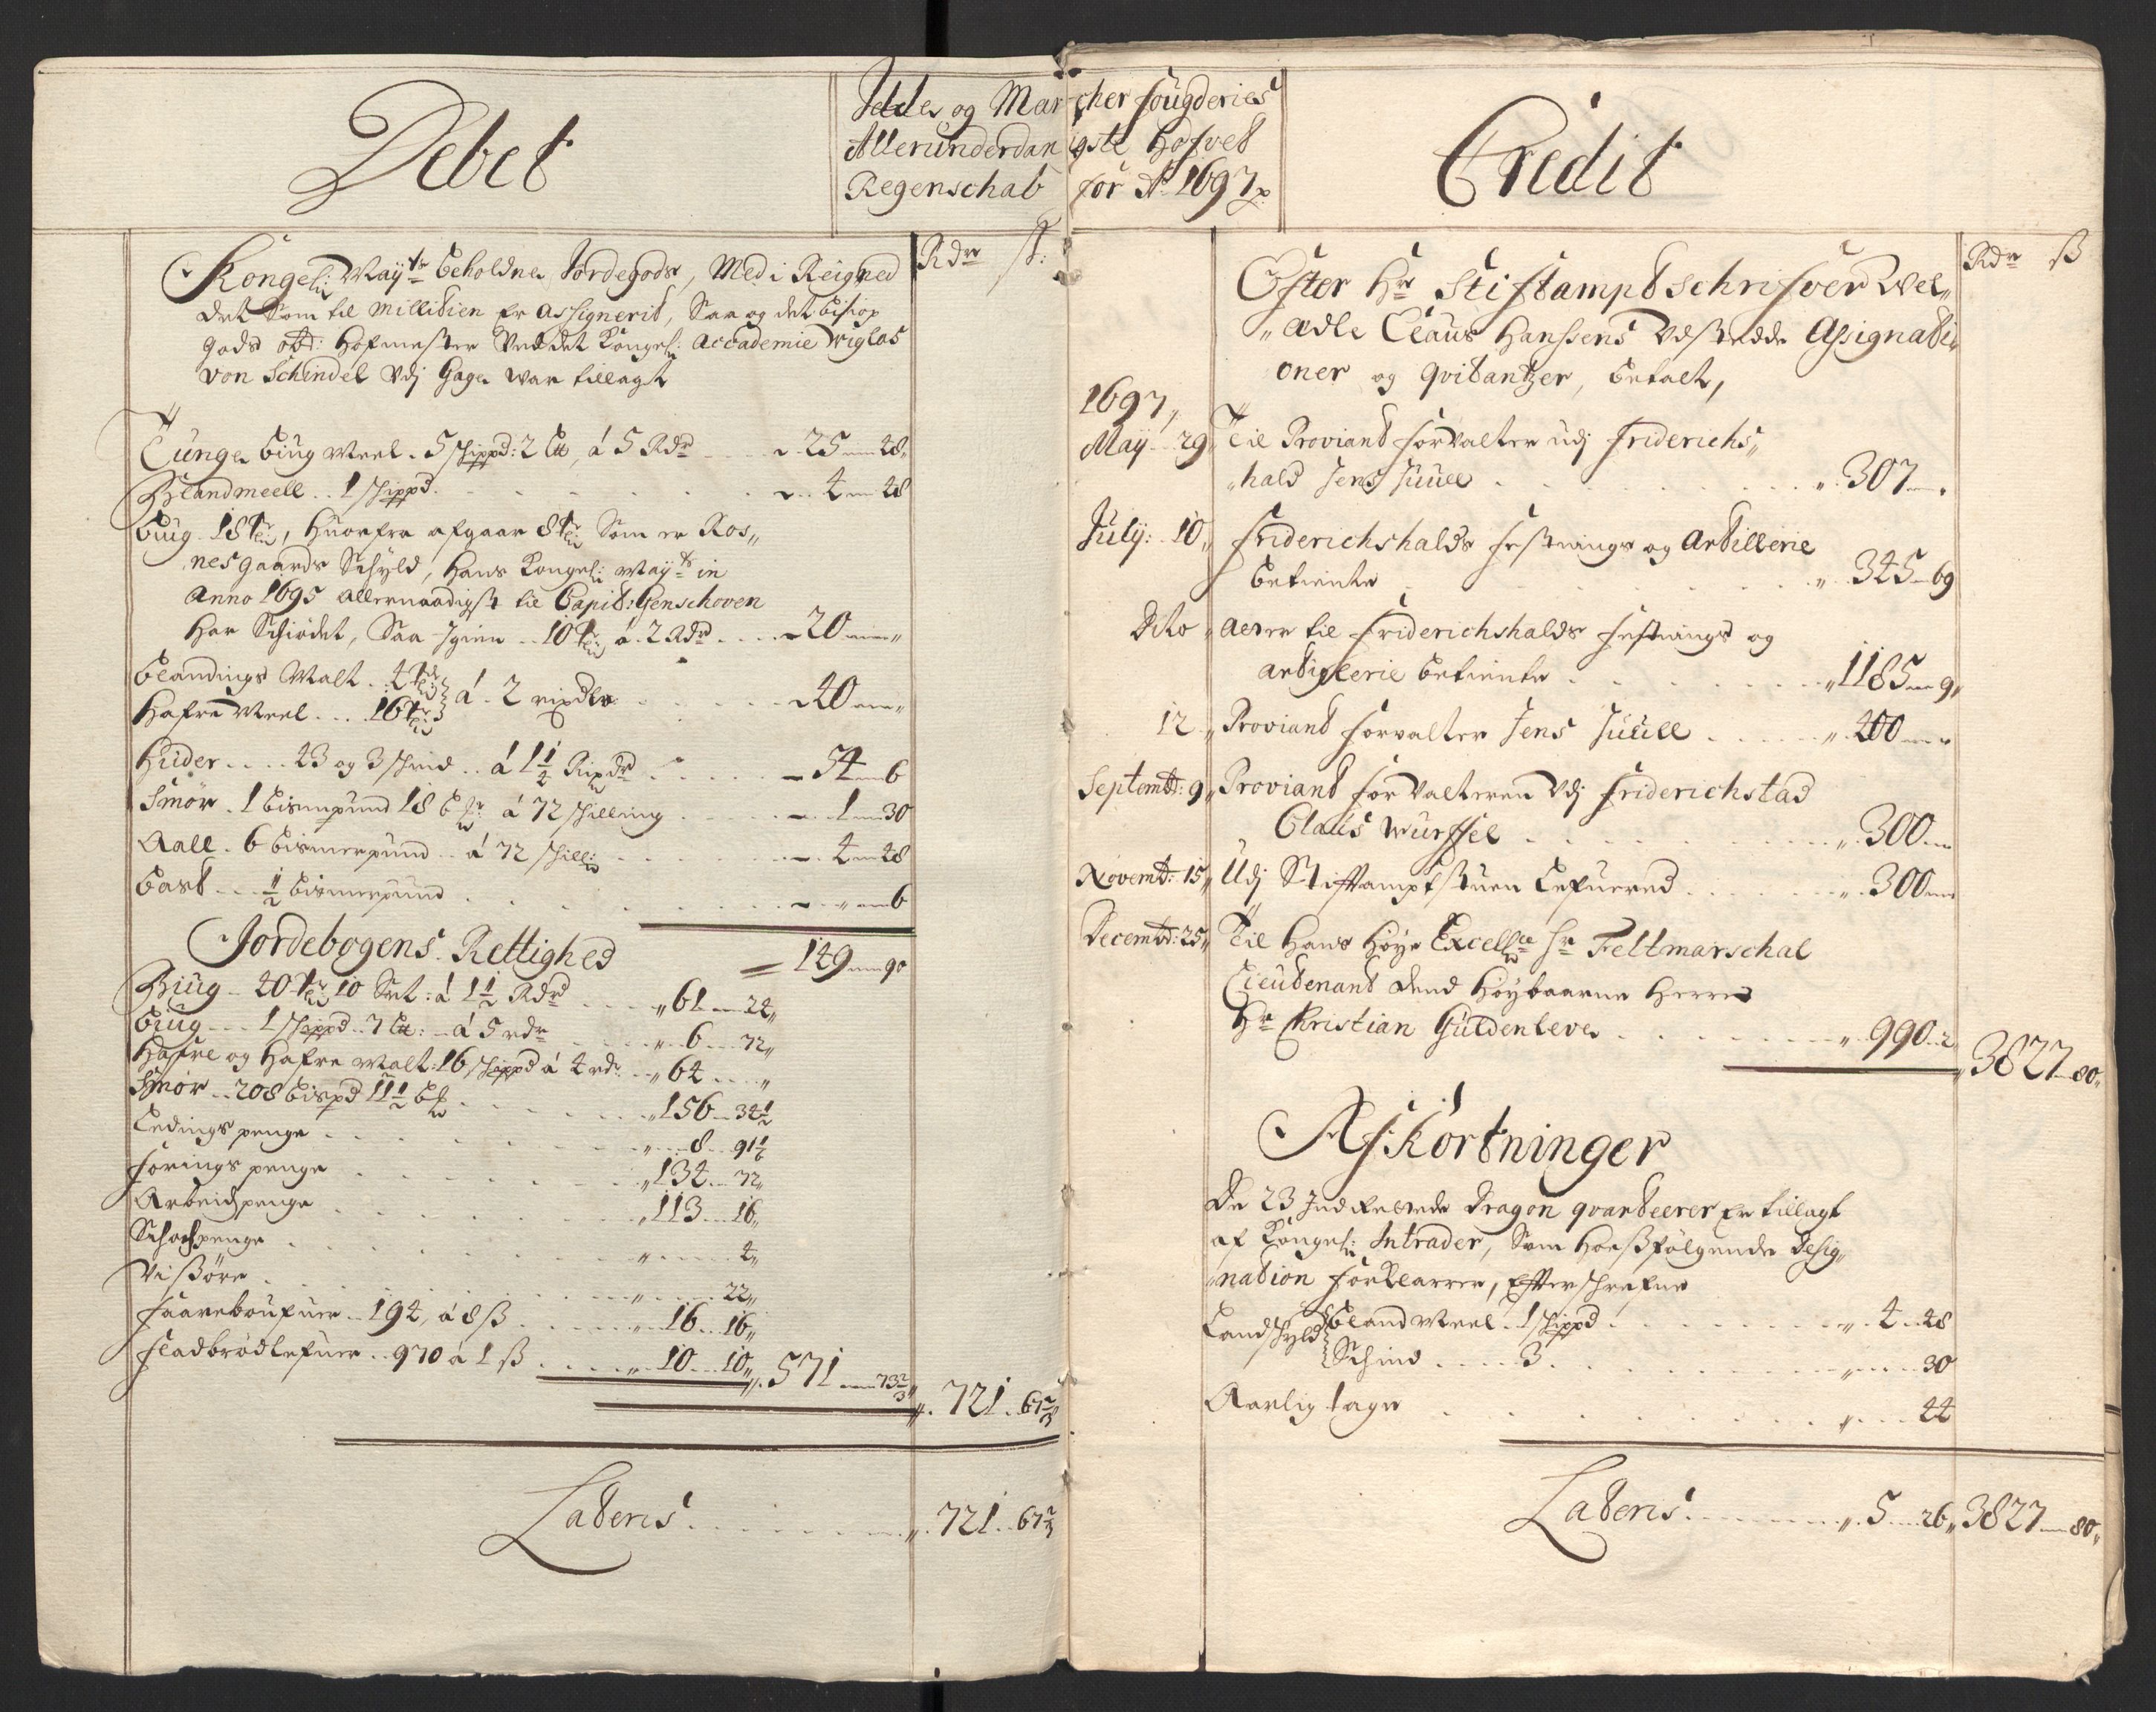 Debet
Idde og Marcher fougderies
Allerunderdanigste Hofved
Regenschab for Ao 1697
Credit
Rdr ß:
Kongel: Mayts beholdne Jordegods, Med i Reigned
det Som til Millitien er Assignerit, Saa og det bisiop
gods Hofmester Ved det Kongel: Accademie Wiglas
von Schindel Udj Gage war tillagt
Tunge biug Meel . 5 schippd: 2 Ltt, á 5 Rdr 25 48
Blandmeell . . 1 schippd 4 48
biug . 18 tr, huorfra afgaar 8 tr Som er Ros„
nesgaards Schyld, hans Kongel: Mayts in
Anno 1695 allernaadigst til Capit: Genschoven
har Schiødet, Saa Igien . . 10 tr á 2 Rdr 20
blandings Malt . 4 tr
Hafre Meel . . . 16 tr á . 2 rixdlr 40
Huder . . . . 23 og 3 schind . . á 1 1/2 Rixdr 54 6
Smør . 1 bismerpund 18 á 72 schilling 1 30
Aall . 6 bismerpund . . á 72 schill: 4 48
bast . . . 1/2 bismerpund 6
149 90
Jordebogens Rettighed
Biug . . 40 tr 10 Set: á 1 1/2 Rdr 61 24
biug . . . 1 schippd . 7 Ltt: á 5 rdr 6 72
Hafre og Hafre Malt: 16 schippd á 4 rdr 64
Smør . . 208 bispd 11 1/2 156 34 1/2
Ledings penge 8 91 1/6
Forings penge 134 72
Arbeidspenge 113 16
Schochpenge 4
Vißøre 22
Faareboufuer . . 194, á 8 ß 16 16
Fladbrødlefuer . . 970 á 1 ß 10 10 571 73 2/3
721 67 2/3
Lateris 721 67 2/3
Rdr ß
Efter Hr Stiftamptschrifver Wel„
„ædle Claus Hanssens Udstædde Assignati„
oner og qvitantzer, betalt,
1697
May 29 Til Proviant forvalter udj Friderichs„
„hald Jens Juuel 307
July: 10 Friderichshalds Festnings og Artillerie
betiente 345 69
Dito aerer til Friderichshalds Festnings og
artiglerie betiente 1185 9
12 Proviant forvalter Jens Juuell 400
Septembr: 9 Proviant forvalteren Udj Friderichstad
Claus Wurffel 300
Novembr: 15 Udj Stiftamptstuen Lefuered 300
Decembr: 25 Til Hans Høye Excellce Hr Feltmarschal
Lieutenant dend Høybaarne Herre
Hr Christian Guldenleve 990 2
3827 80
Afkortninger
De 23 Dragon qvarteerer er tillagt
af Kongel: Intrader, Som hoesfølgende Desig„
„nation forklarrer, Efterschrefne
Landschyld bland Meel . 1 schippd 4 48
Schind . . . . 3 30
Aarlig tage 44
Lateris 5 26 3827 80